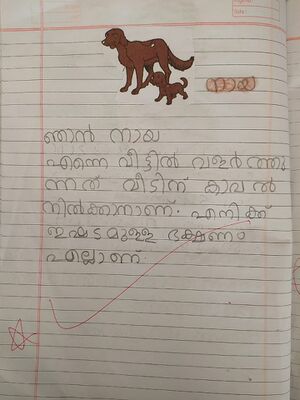 നായ
ഞാൻ നായ
എന്നെ വീട്ടിൽ വളർത്തു
ന്നത് വീടിന് കാവൽ
നിൽക്കാനാണ്. എനിക്ക്
ഇഷ്ടമുള്ള ഭക്ഷണം
എല്ലാണ്